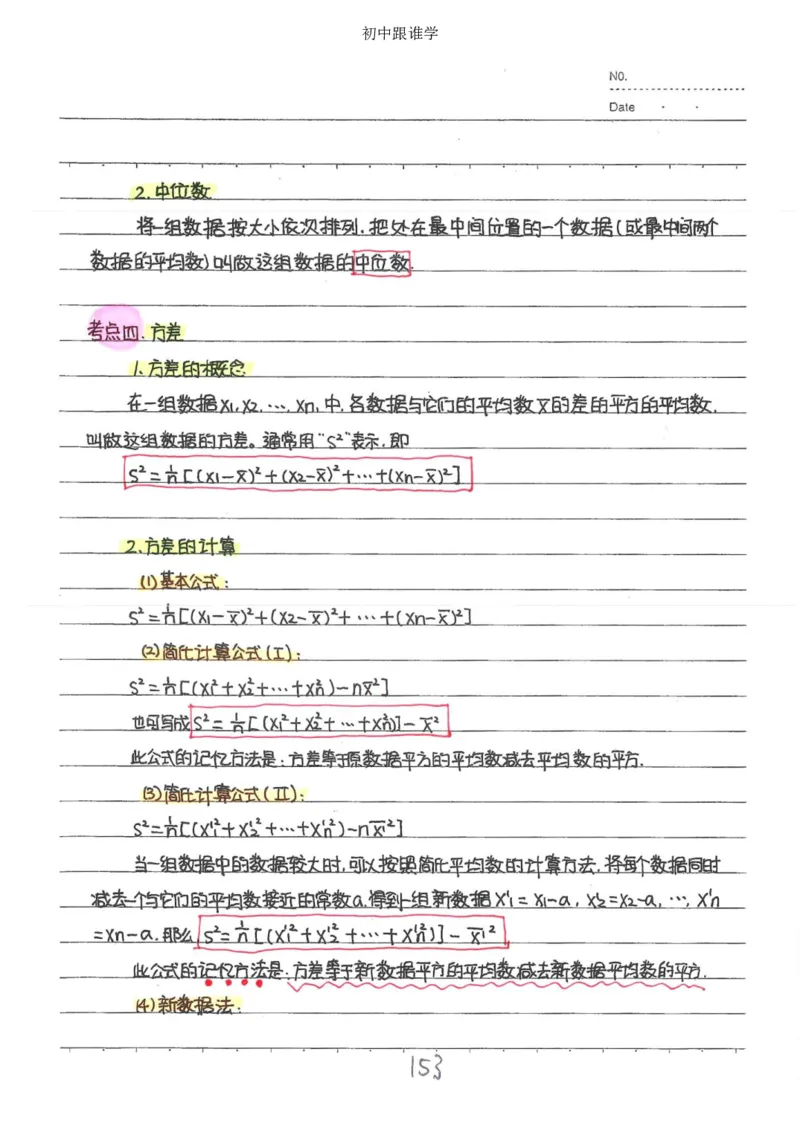 初中跟谁学
NO.
Date · ·
2.中位数
将一组数据按大小依次排列,把处在最中间位置的一个数据(或最中间两个
数据的平均数)叫做这组数据的中位数.
考点四.方差
1、方差的概念
在一组数据x₁,x₂,…,xₙ,中,各数据与它们的平均数x̅的差的平方的平均数,
叫做这组数据的方差。通常用“S²”表示,即
S²=1/n[(x₁-x̅)²+(x₂-x̅)²+…+(xₙ-x̅)²]
2、方差的计算
(1)基本公式:
S²=1/n[(x₁-x̅)²+(x₂-x̅)²+…+(xₙ-x̅)²]
(2)简化计算公式(Ⅰ):
S²=1/n[(x₁²+x₂²+…+xₙ²)-nx̅²]
也可写成S²=1/n[(x₁²+x₂²+…+xₙ²)]-x̅²
此公式的记忆方法是:方差等于原数据平方的平均数减去平均数的平方.
(3)简化计算公式(Ⅱ):
S²=1/n[(x'₁²+x'₂²+…+x'ₙ²)-nx̅'²]
当一组数据中的数据较大时,可以按照简化平均数的计算方法,将每个数据同时
减去一个与它们的平均数接近的常数a,得到一组新数据x'₁=x₁-a,x'₂=x₂-a,…,x'ₙ
=xₙ-a,那么S²=1/n[(x'₁²+x'₂²+…+x'ₙ²)]-x̅'²
此公式的记忆方法是:方差等于新数据平方的平均数减去新数据平均数的平方.
(4)新数据法:
153